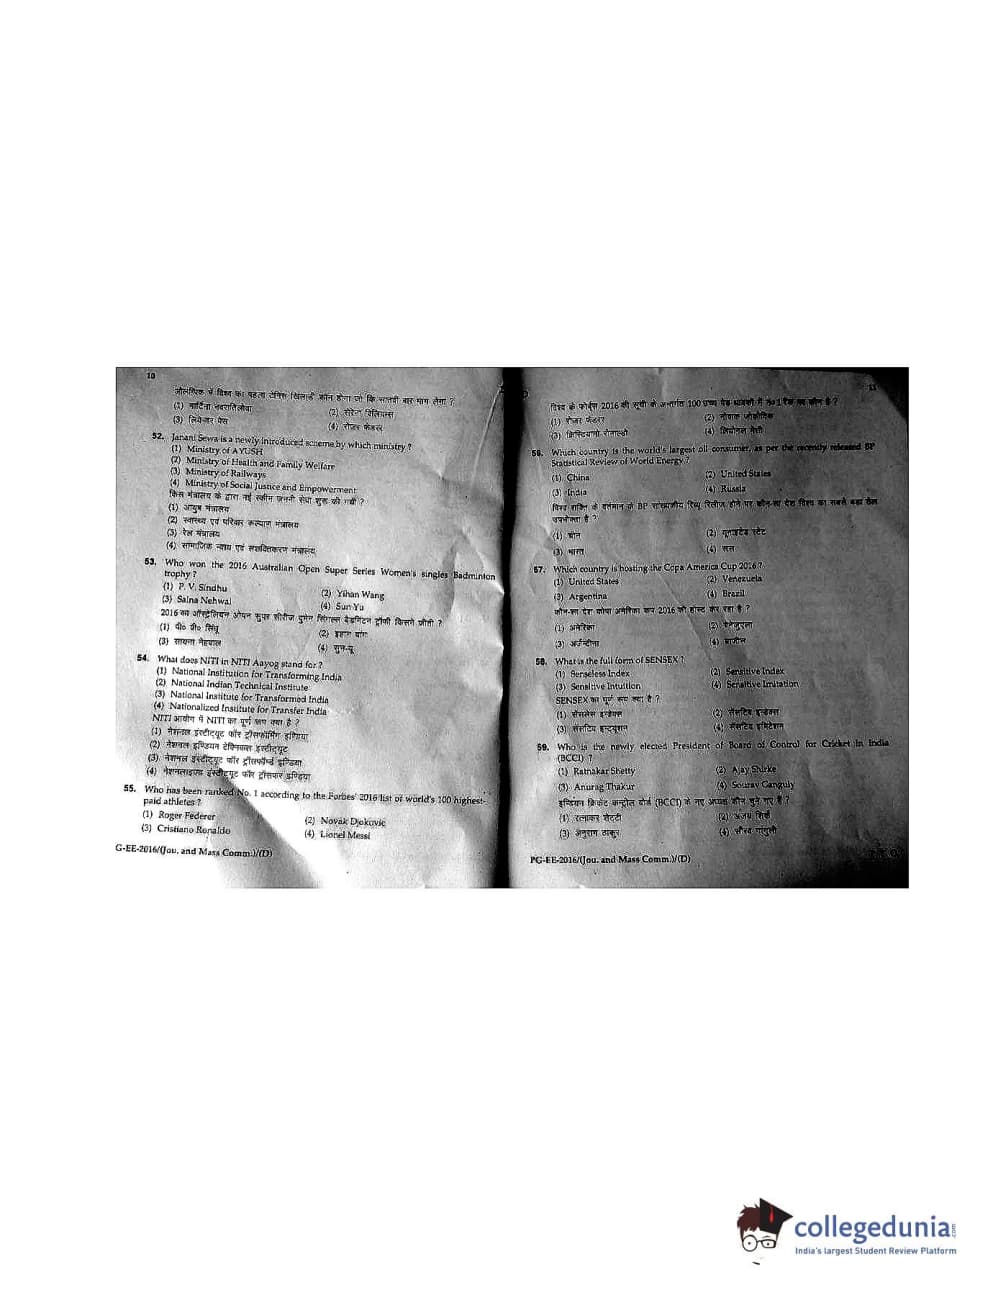 10
ओलम्पिक में विश्व का पहला टेनिस खिलाड़ी कौन होगा जो कि सातवीं बार भाग लेगा ?
(1) मार्टिना नवरातिलोवा
(2) सेरेना विलियम्स
(3) लियेन्डर पेस
(4) रोजर फेडरर
52. Janani Sewa is a newly introduced scheme by which ministry ?
(1) Ministry of AYUSH
(2) Ministry of Health and Family Welfare
(3) Ministry of Railways
(4) Ministry of Social Justice and Empowerment
किस मंत्रालय के द्वारा नई स्कीम जननी सेवा शुरू की गयी ?
(1) आयुष मंत्रालय
(2) स्वास्थ्य एवं परिवार कल्याण मंत्रालय
(3) रेल मंत्रालय
(4) सामाजिक न्याय एवं सशक्तिकरण मंत्रालय
53. Who won the 2016 Australian Open Super Series Women's singles Badminton
trophy ?
(1) P. V. Sindhu
(2) Yihan Wang
(3) Saina Nehwal
(4) Sun Yu
2016 का ऑस्ट्रेलियन ओपन सुपर सीरीज वुमेन सिंगल्स बैडमिंटन ट्रॉफी किसने जीती ?
(1) पी० वी० सिंधू
(2) इहान वांग
(3) सायना नेहवाल
(4) सुन-यू
54. What does NITI in NITI Aayog stand for ?
(1) National Institution for Transforming India
(2) National Indian Technical Institute
(3) National Institute for Transformed India
(4) Nationalized Institute for Transfer India
NITI आयोग में NITI का पूर्ण रूप क्या है ?
(1) नेशनल इंस्टीट्यूट फॉर ट्रॉसफॉर्मिंग इण्डिया
(2) नेशनल इण्डियन टेक्निकल इंस्टीट्यूट
(3) नेशनल इंस्टीट्यूट फॉर ट्रॉसफॉर्म्ड इण्डिया
(4) नेशनलाइज्ड इंस्टीट्यूट फॉर ट्रॉसफर इण्डिया
55. Who has been ranked No. 1 according to the Forbes' 2016 list of world's 100 highest-
paid athletes ?
(1) Roger Federer
(2) Novak Djokovic
(3) Cristiano Ronaldo
(4) Lionel Messi
G-EE-2016/(Jou. and Mass Comm.)/(D)
11
विश्व के फोर्ब्स 2016 की सूची के अन्तर्गत 100 उच्च पेड धावकों में नं० 1 रैंक पर कौन है ?
(1) रोजर फेडरर
(2) नोवाक जोकोविक
(3) क्रिस्टियानो रोनाल्डो
(4) लियोनल मेसी
56. Which country is the world's largest oil consumer, as per the recently released BP
Statistical Review of World Energy ?
(1) China
(2) United States
(3) India
(4) Russia
विश्व शक्ति के वर्तमान के BP सांख्यकीय रिव्यू रिलीज होने पर कौन-सा देश विश्व का सबसे बड़ा तेल
उपभोक्ता है ?
(1) चीन
(2) यूनाइटेड स्टेट
(3) भारत
(4) रूस
57. Which country is hosting the Copa America Cup 2016 ?
(1) United States
(2) Venezuela
(3) Argentina
(4) Brazil
कौन-सा देश कोपा अमेरिका कप 2016 को होस्ट कर रहा है ?
(1) अमेरिका
(2) वेनेजुएला
(3) अर्जेन्टीना
(4) ब्राजील
58. What is the full form of SENSEX ?
(1) Senseless Index
(2) Sensitive Index
(3) Sensitive Intuition
(4) Sensitive Imitation
SENSEX का पूर्ण रूप क्या है ?
(1) सेंसलेस इन्डेक्स
(2) सेंसटिव इन्डेक्स
(3) सेंसटिव इन्ट्यूशन
(4) सेंसटिव इमिटेशन
59. Who is the newly elected President of Board of Control for Cricket in India
(BCCI) ?
(1) Ratnakar Shetty
(2) Ajay Shirke
(3) Anurag Thakur
(4) Sourav Ganguly
इण्डियन क्रिकेट कन्ट्रोल बोर्ड (BCCI) के नए अध्यक्ष कौन चुने गए हैं ?
(1) रत्नाकर शेट्टी
(2) अजय शिर्के
(3) अनुराग ठाकुर
(4) सौरव गांगुली
PG-EE-2016/(Jou. and Mass Comm.)/(D)
collegedunia.com
India's largest Student Review Platform